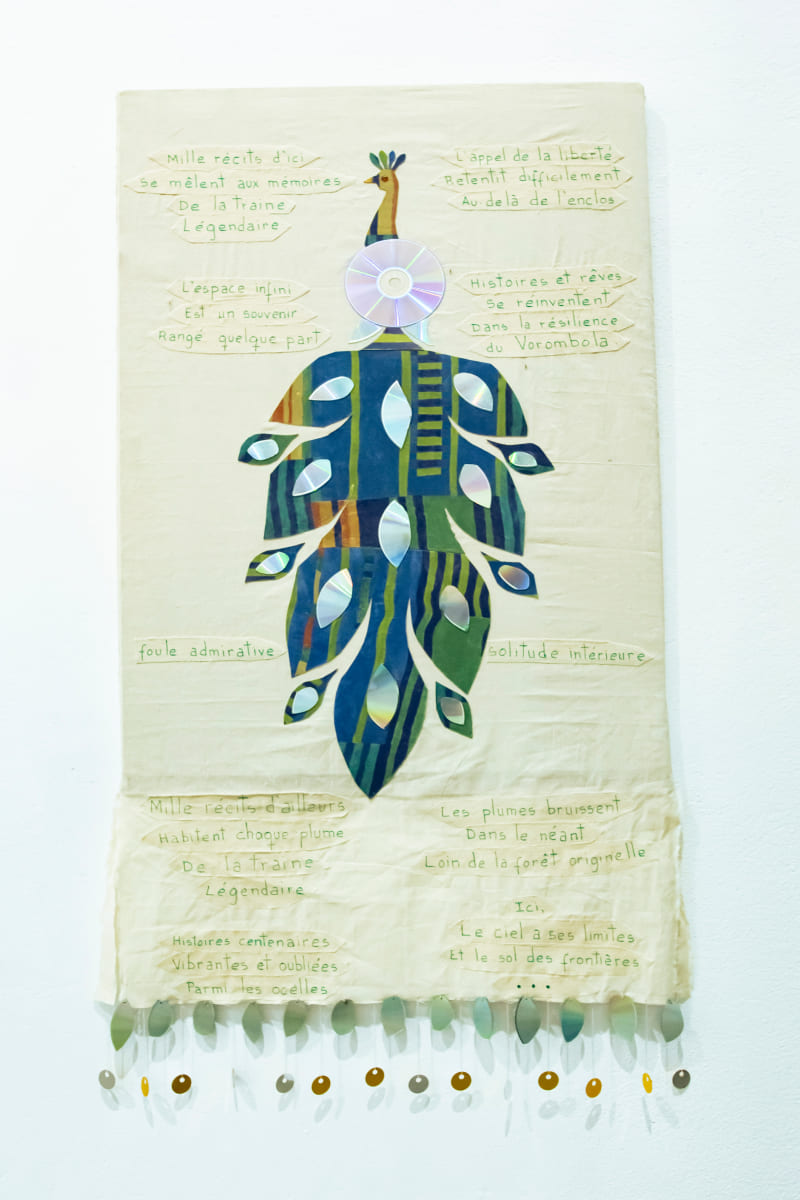 Mille récits d'ici
Se mêlent aux mémoires
De la traine
Légendaire
L'appel de la liberté
Retentit difficilement
Au delà de l'enclos
L'espace infini
Est un souvenir
Rangé quelque part
Histoires et rêves
Se réinventent
Dans la résilience
du Vorombola.
foule admirative
solitude intérieure
Mille récits d'ailleurs
Habitent chaque plume
De la traine
Légendaire
Les plumes bruissent
Dans le néant
Loin de la forêt originelle
Histoires centenaires
Vibrantes et oubliées
Parmi les ocelles
Ici,
Le ciel a ses limites
Et le sol des frontières
...